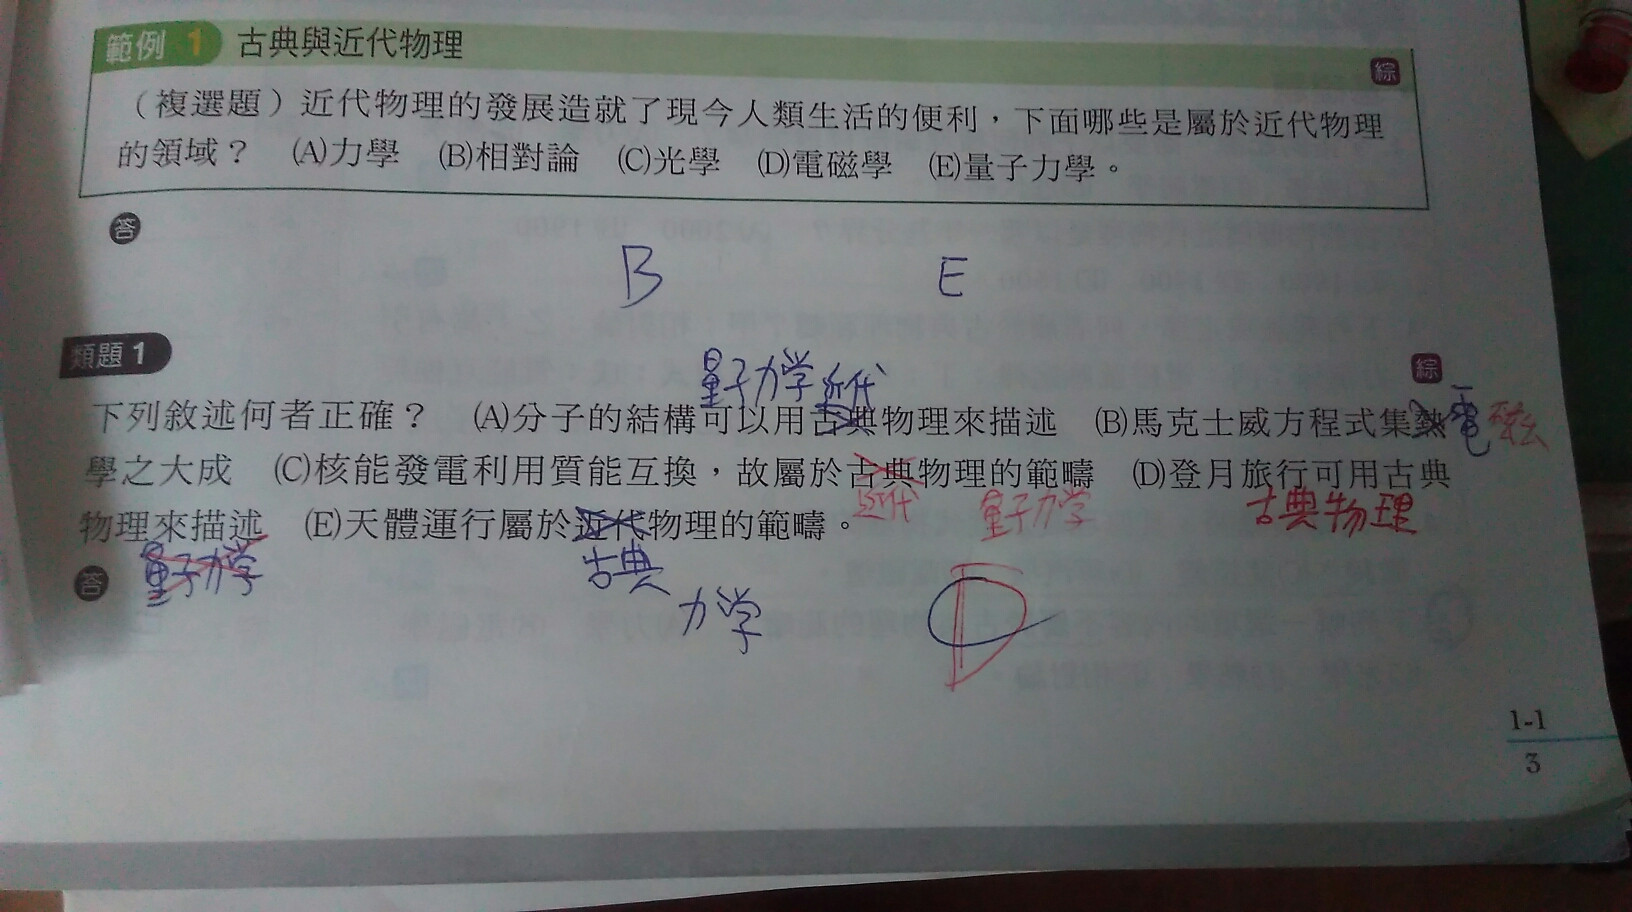 範例 1 古典與近代物理
綜
（複選題）近代物理的發展造就了現今人類生活的便利，下面哪些是屬於近代物理
的領域？ (A)力學 (B)相對論 (C)光學 (D)電磁學 (E)量子力學。
答
B E
類題 1
綜
量子力学 近代
下列敘述何者正確？ (A)分子的結構可以用古典物理來描述 (B)馬克士威方程式集熱 電磁
學之大成 (C)核能發電利用質能互換，故屬於古典物理的範疇 (D)登月旅行可用古典
近代 量子力学 古典物理
物理來描述 (E)天體運行屬於近代物理的範疇。
量子力学 古典
答
力学 D
1-1
3